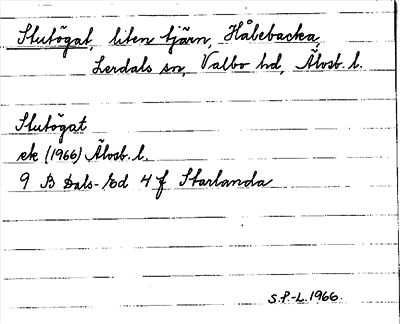 Stutögat, liten tjärn, Håbebacka,
Lerdals sn, Valbo hd, Älvsb. l.
Stutögat
ek (1966) Älvsb. l.
9 B Dals-Ed 4 f Starlanda
S.P-L. 1966.